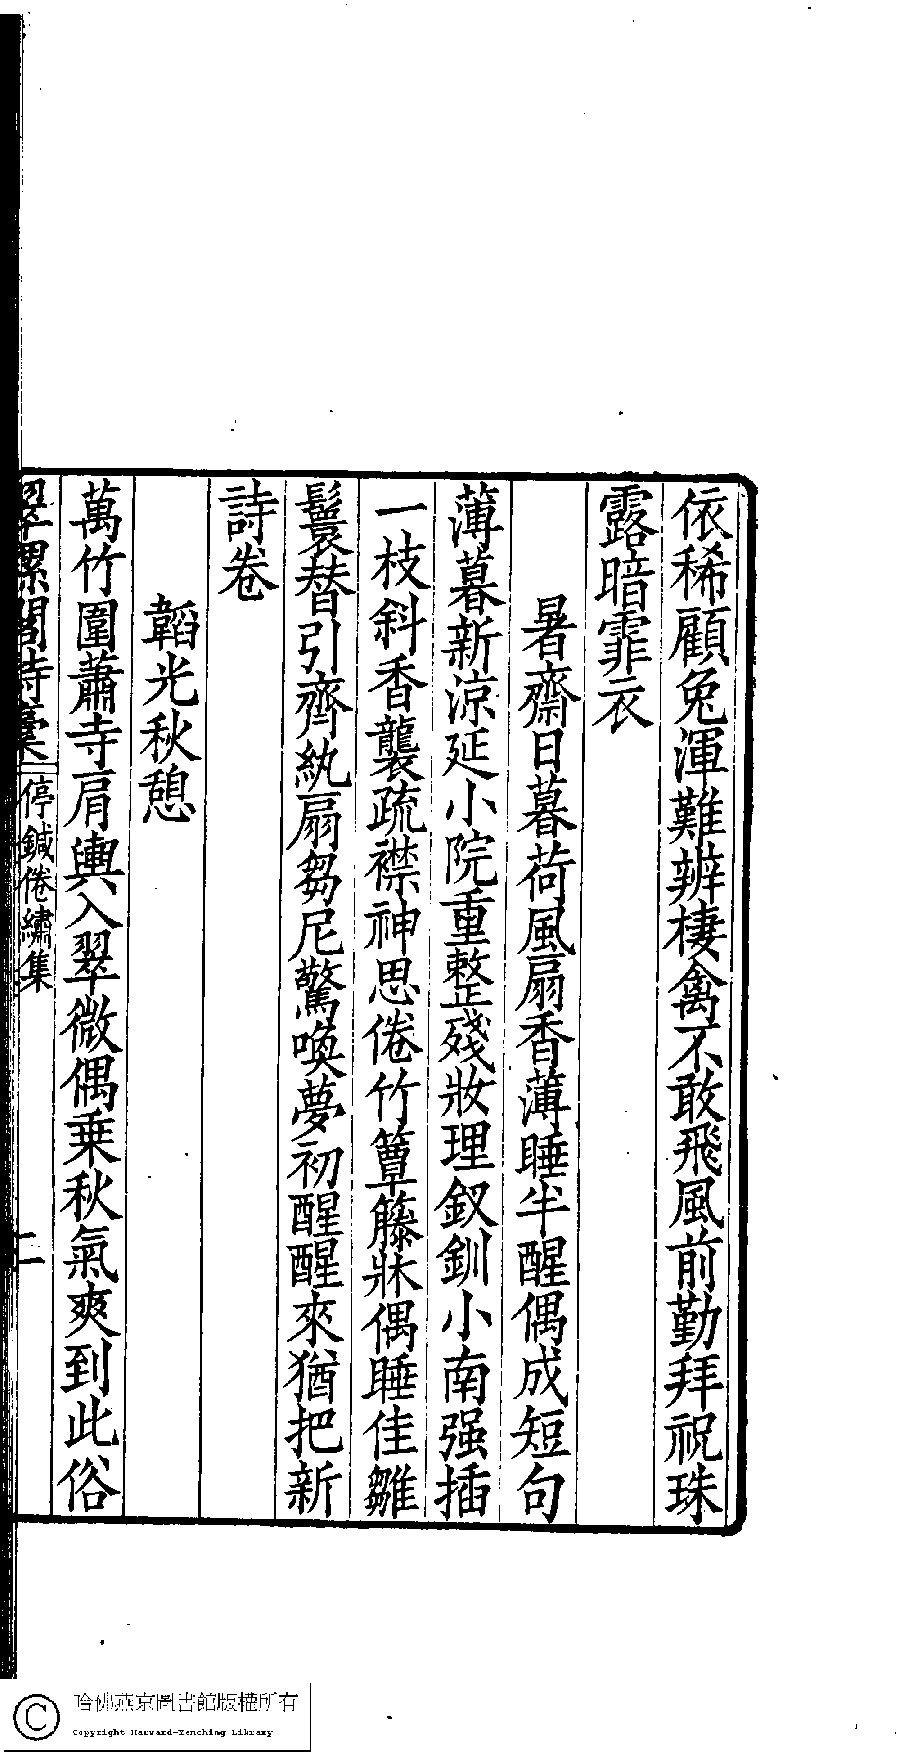 依稀顧兔渾難辨棲禽不敢飛風前勤拜祝珠
露暗霏衣
暑齋日暮荷風扇香薄睡半醒偶成短句
薄暮新涼延小院重整殘妝理釵釧小南强插
一枝斜香襲疏襟神思倦竹簟籐牀偶睡佳雛
鬟替引齊紈扇芻尼驚喚夢初醒醒來猶把新
詩卷
韜光秋憩
萬竹圍蕭寺肩輿入翠微偶乗秋氣爽到此俗
翠螺閣詩稾 停鍼倦繡集 二
哈佛燕京圖書館版權所有
Copyright Harvard-Yenching Library